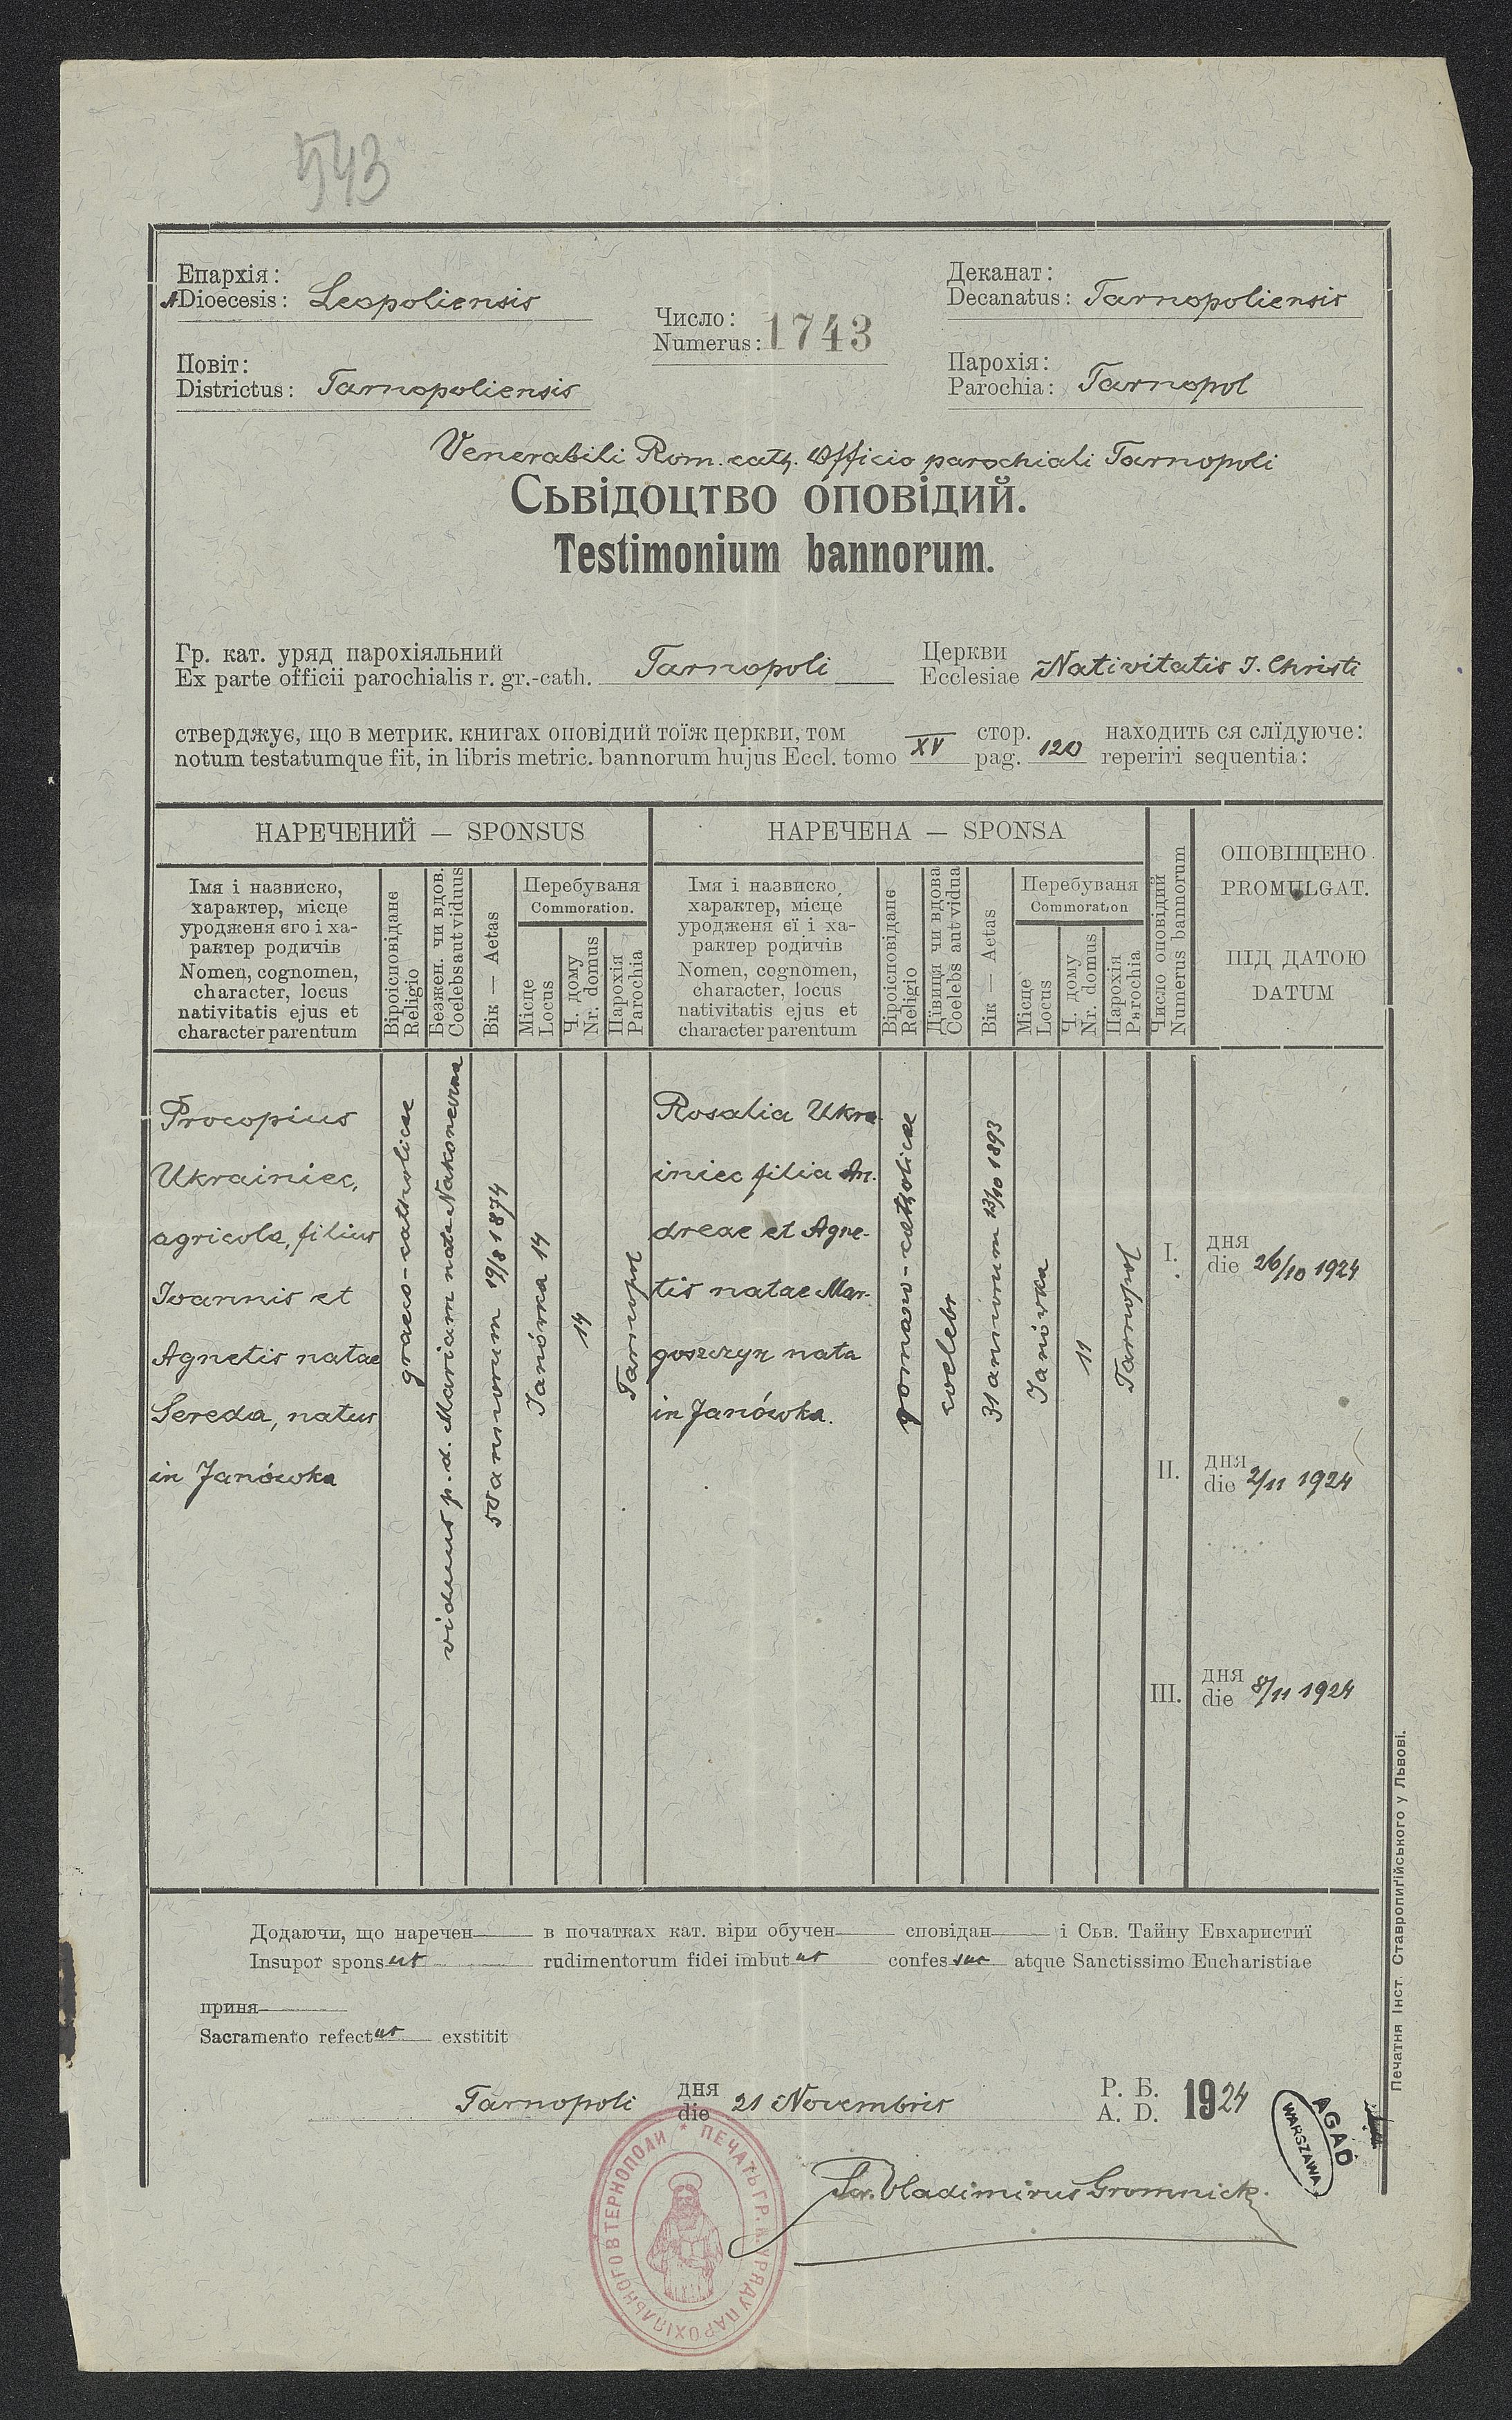 543
Епархія:
ADioecesis: Leopoliensis
Повіт:
Districtus: Tarnopoliensis
Число:
Numerus: 1743
Деканат:
Decanatus: Tarnopoliensis
Парохія:
Parochia: Tarnopol
Venerabili Rom. cath. Officio parochiali Tarnopoli
Сьвідоцтво оповідий.
Testimonium bannorum.
Гр. кат. уряд парохіяльний
Ex parte officii parochialis r. gr.-cath. Tarnopoli
Церкви
Ecclesiae Nativitatis J. Christi
стверджує, що в метрик. книгах оповідий тоїж церкви, том стор. находить ся слїдуюче:
notum testatumque fit, in libris metric. bannorum hujus Eccl. tomo XV pag. 120 reperiri sequentia:
НАРЕЧЕНИЙ — SPONSUS
Імя і назвиско,
характер, місце
уродженя єго і ха-
рактер родичів
Nomen, cognomen,
character, locus
nativitatis ejus et
character parentum
Віроісповіданє
Religio
Безжен. чи вдов.
Coelebs aut viduus
Вік — Aetas
Перебуваня
Commoration.
Місце
Locus
Ч. дому
Nr. domus
Парохія
Parochia
НАРЕЧЕНА — SPONSA
Імя і назвиско,
характер, місце
уродженя єї і ха-
рактер родичів
Nomen, cognomen,
character, locus
nativitatis ejus et
character parentum
Віроісповіданє
Religio
Дївиця чи вдова
Coelebs aut vidua
Вік — Aetas
Перебуваня
Commoration
Місце
Locus
Ч. дому
Nr. domus
Парохія
Parochia
Число оповідий
Numerus bannorum
ОПОВІЩЕНО
PROMULGAT.
ПІД ДАТОЮ
DATUM
Procopius
Ukrainiec,
agricola, filius
Joannis et
Agnetis natae
Sereda, natus
in Janówka
graeco-catholicae
viduus p. d. Mariam nata Nakoneczna
50 annorum 19/8 1874
Janówka 14
14
Tarnopol
Rosalia Ukra-
iniec filia An-
dreae et Agne-
tis natae Mar-
goszczyn nata
in Janówka.
romano-catholicae
coelebs
31 annorum 13/10 1893
Janówka
11
Tarnopol
I. дня
die 26/10 1924
II. дня
die 2/11 1924
III. дня
die 8/11 1924
Додаючи, що наречен в початках кат. віри обучен сповідан і Сьв. Тайну Евхаристиї
Insuper sponsus rudimentorum fidei imbutus confessus atque Sanctissimo Eucharistiae
приня
Sacramento refectus exstitit
Tarnopoli дня
die 21 Novembris
Р. Б.
A. D. 1924
Vladimirus Gromnicki.
ПЕЧАТЬ ГР. К. УРЯДУ ПАРОХІЯЛЬНОГО В ТЕРНОПОЛИ *
AGAD
WARSZAWA
Печатня Інст. Ставропигійського у Львові.